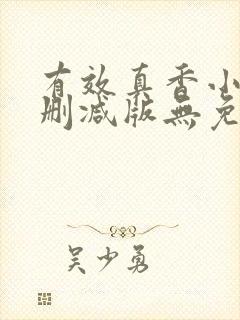 有效真香小
删减版無免
吴少勇